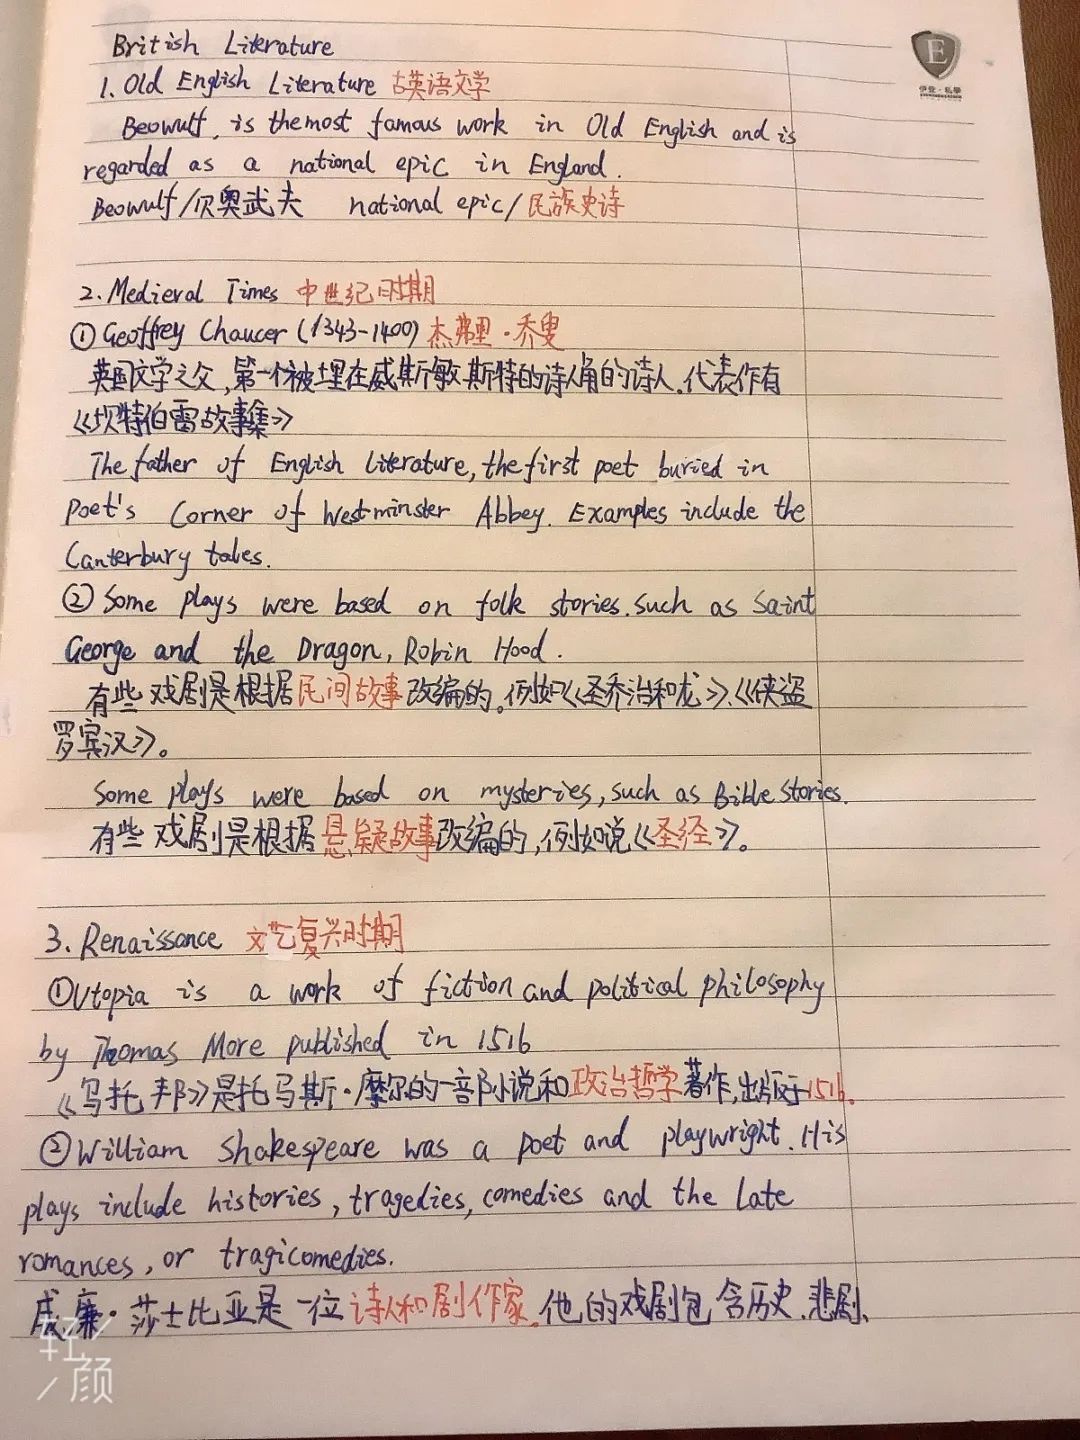 British Literature
1. Old English Literature 古英语文学
Beowulf, is the most famous work in Old English and is
regarded as a national epic in England.
Beowulf/贝奥武夫 national epic/民族史诗
2. Medieval Times 中世纪时期
① Geoffrey Chaucer (1343-1400) 杰弗里·乔叟
英国文学之父,第一个被埋在威斯敏斯特的诗人角的诗人.代表作有
《坎特伯雷故事集》
The father of English Literature, the first poet buried in
Poet's Corner of Westminster Abbey. Examples include the
Canterbury tales.
② Some plays were based on folk stories. such as Saint
George and the Dragon, Robin Hood.
有些戏剧是根据民间故事改编的。例如《圣乔治和龙》、《侠盗
罗宾汉》。
Some plays were based on mysteries, such as Bible stories.
有些戏剧是根据悬疑故事改编的,例如说《圣经》。
3. Renaissance 文艺复兴时期
①Utopia is a work of fiction and political philosophy
by Thomas More published in 1516
《乌托邦》是托马斯·摩尔的一部小说和政治哲学著作,出版于1516。
②William Shakespeare was a poet and playwright. His
plays include histories, tragedies, comedies and the late
romances, or tragicomedies.
威廉·莎士比亚是一位诗人和剧作家。他的戏剧包含历史、悲剧、
E
伊登·私學
轻颜